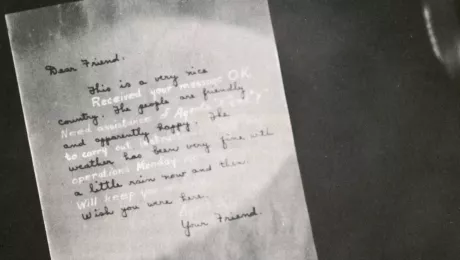 Dear Friend,
This is a very nice
Received your message OK
country. The people are friendly
Need assistance of Agents
and apparently happy. The
to carry out
weather has been very fine with
operations Monday
a little rain now and then.
Will keep you
Wish you were here.
Your Friend.